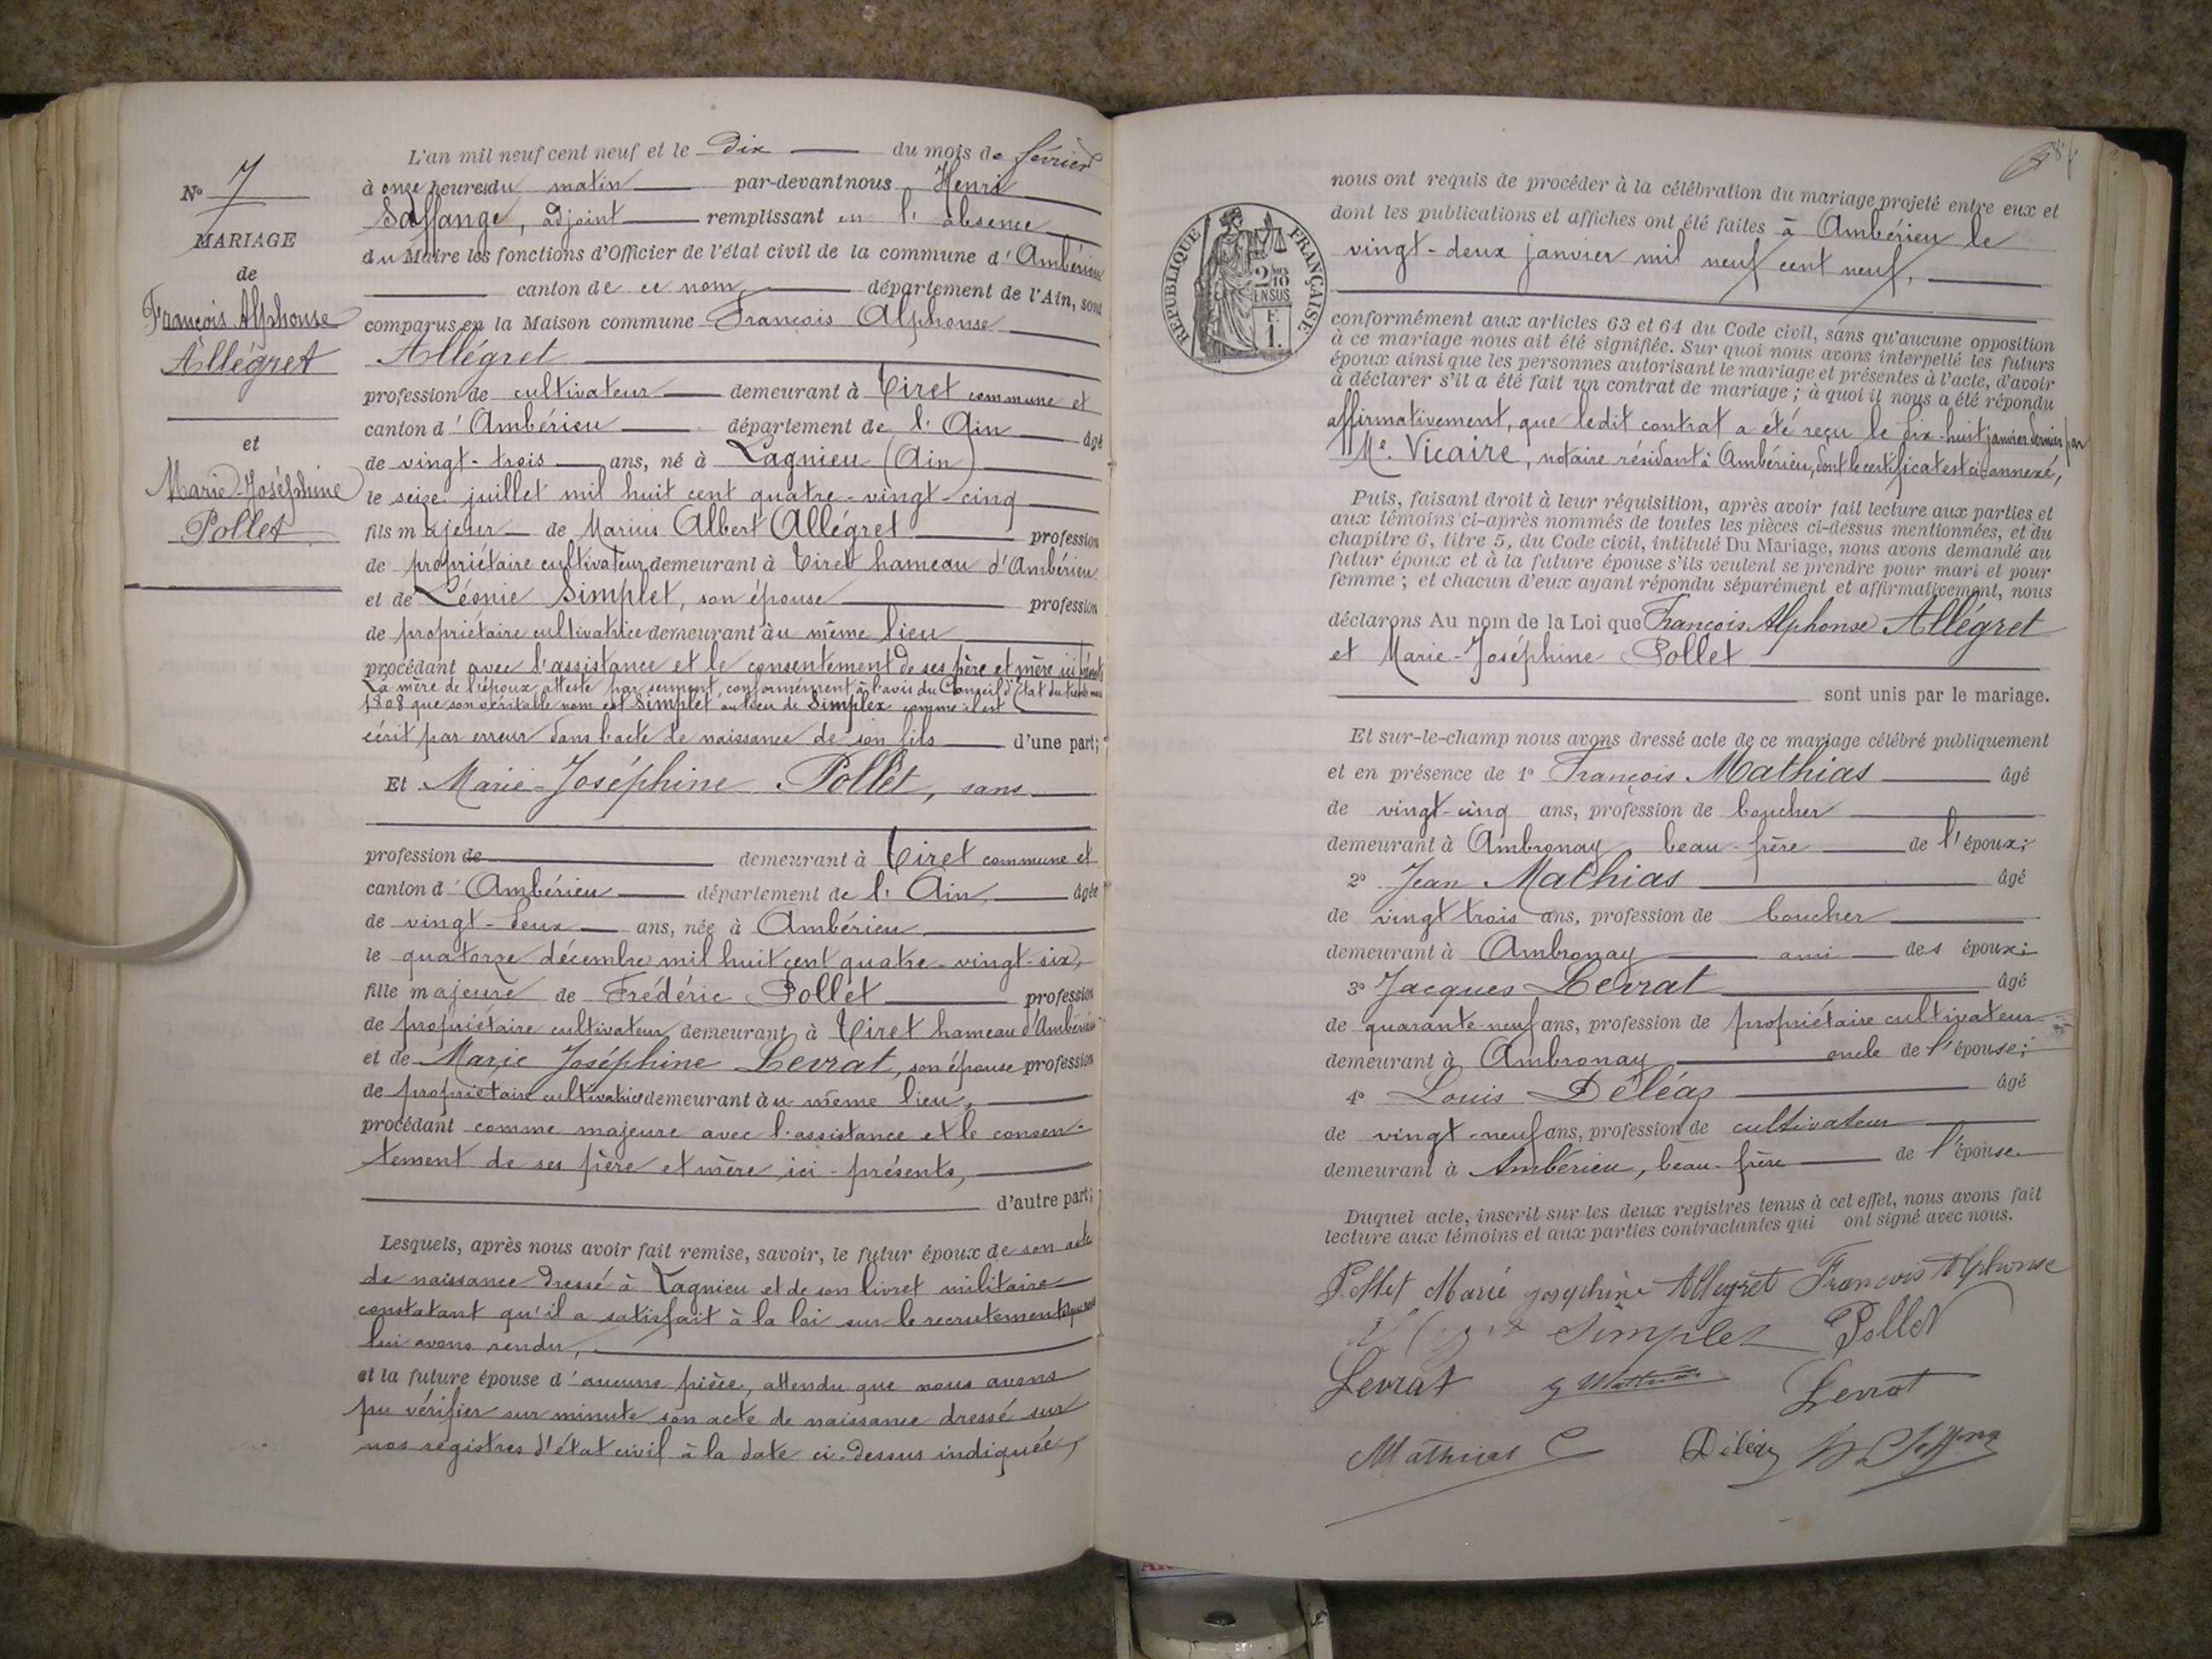 N° 7
MARIAGE
de
François Alphonse
Allégret
et
Marie-Joséphine
Pollet
L'an mil neuf cent neuf et le dix du mois de février
à onze heures du matin par-devant nous Henri
Saffange, adjoint remplissant en l'absence
du Maire les fonctions d'Officier de l'état civil de la commune d'Ambérieu
canton de ce nom, département de l'Ain, sont
comparus en la Maison commune François Alphonse
Allégret
profession de cultivateur demeurant à Tiret commune et
canton d'Ambérieu département de l'Ain âgé
de vingt-trois ans, né à Lagnieu (Ain)
le seize juillet mil huit cent quatre-vingt-cinq
fils majeur de Marius Albert Allégret profession
de propriétaire cultivateur demeurant à Tiret hameau d'Ambérieu
et de Léonie Simplet, son épouse profession
de propriétaire cultivatrice demeurant au même lieu
procédant avec l'assistance et le consentement de ses père et mère ici présents
La mère de l'époux atteste par serment, conformément à l'avis du Conseil d'Etat du trente mars
1808 que son véritable nom est Simplet au lieu de Simplex comme il est
écrit par erreur dans l'acte de naissance de son fils d'une part;
Et Marie-Joséphine Pollet, sans
profession de demeurant à Tiret commune et
canton d'Ambérieu département de l'Ain, âgée
de vingt-deux ans, née à Ambérieu
le quatorze décembre mil huit cent quatre-vingt-six,
fille majeure de Frédéric Pollet profession
de propriétaire cultivateur demeurant à Tiret hameau d'Ambérieu
et de Marie Joséphine Levrat, son épouse profession
de propriétaire cultivatrice demeurant au même lieu,
procédant comme majeure avec l'assistance et le consen-
tement de ses père et mère ici-présents,
d'autre part;
Lesquels, après nous avoir fait remise, savoir, le futur époux de son acte
de naissance dressé à Lagnieu et de son livret militaire
constatant qu'il a satisfait à la loi sur le recrutement que nous
lui avons rendu,
et la future épouse d'aucune pièce, attendu que nous avons
pu vérifier sur minute son acte de naissance dressé sur
nos registres d'état civil à la date ci-dessus indiquée,
RÉPUBLIQUE FRANÇAISE
2/10
EN SUS
F.
1.
nous ont requis de procéder à la célébration du mariage projeté entre eux et
dont les publications et affiches ont été faites à Ambérieu le
vingt-deux janvier mil neuf cent neuf,
conformément aux articles 63 et 64 du Code civil, sans qu'aucune opposition
à ce mariage nous ait été signifiée. Sur quoi nous avons interpellé les futurs
époux ainsi que les personnes autorisant le mariage et présentes à l'acte, d'avoir
à déclarer s'il a été fait un contrat de mariage; à quoi il nous a été répondu
affirmativement, que ledit contrat a été reçu le dix-huit janvier dernier par
Me. Vicaire, notaire résidant à Ambérieu, dont le certificat est ci-annexé,
Puis, faisant droit à leur réquisition, après avoir fait lecture aux parties et
aux témoins ci-après nommés de toutes les pièces ci-dessus mentionnées, et du
chapitre 6, titre 5, du Code civil, intitulé Du Mariage, nous avons demandé au
futur époux et à la future épouse s'ils veulent se prendre pour mari et pour
femme; et chacun d'eux ayant répondu séparément et affirmativement, nous
déclarons Au nom de la Loi que François Alphonse Allégret
et Marie-Joséphine Pollet
sont unis par le mariage.
Et sur-le-champ nous avons dressé acte de ce mariage célébré publiquement
et en présence de 1° François Mathias âgé
de vingt-cinq ans, profession de boucher
demeurant à Ambronay beau-frère de l'époux;
2° Jean Mathias âgé
de vingt trois ans, profession de boucher
demeurant à Ambronay ami des époux;
3° Jacques Levrat âgé
de quarante-neuf ans, profession de propriétaire cultivateur
demeurant à Ambronay oncle de l'épouse;
4° Louis Déléaz âgé
de vingt-neuf ans, profession de cultivateur
demeurant à Ambérieu, beau-frère de l'épouse.
Duquel acte, inscrit sur les deux registres tenus à cet effet, nous avons fait
lecture aux témoins et aux parties contractantes qui ont signé avec nous.
Pollet Marie josephine Allegret François Alphonse
Simplet Pollet
Levrat Levrat
Mathias Déléaz